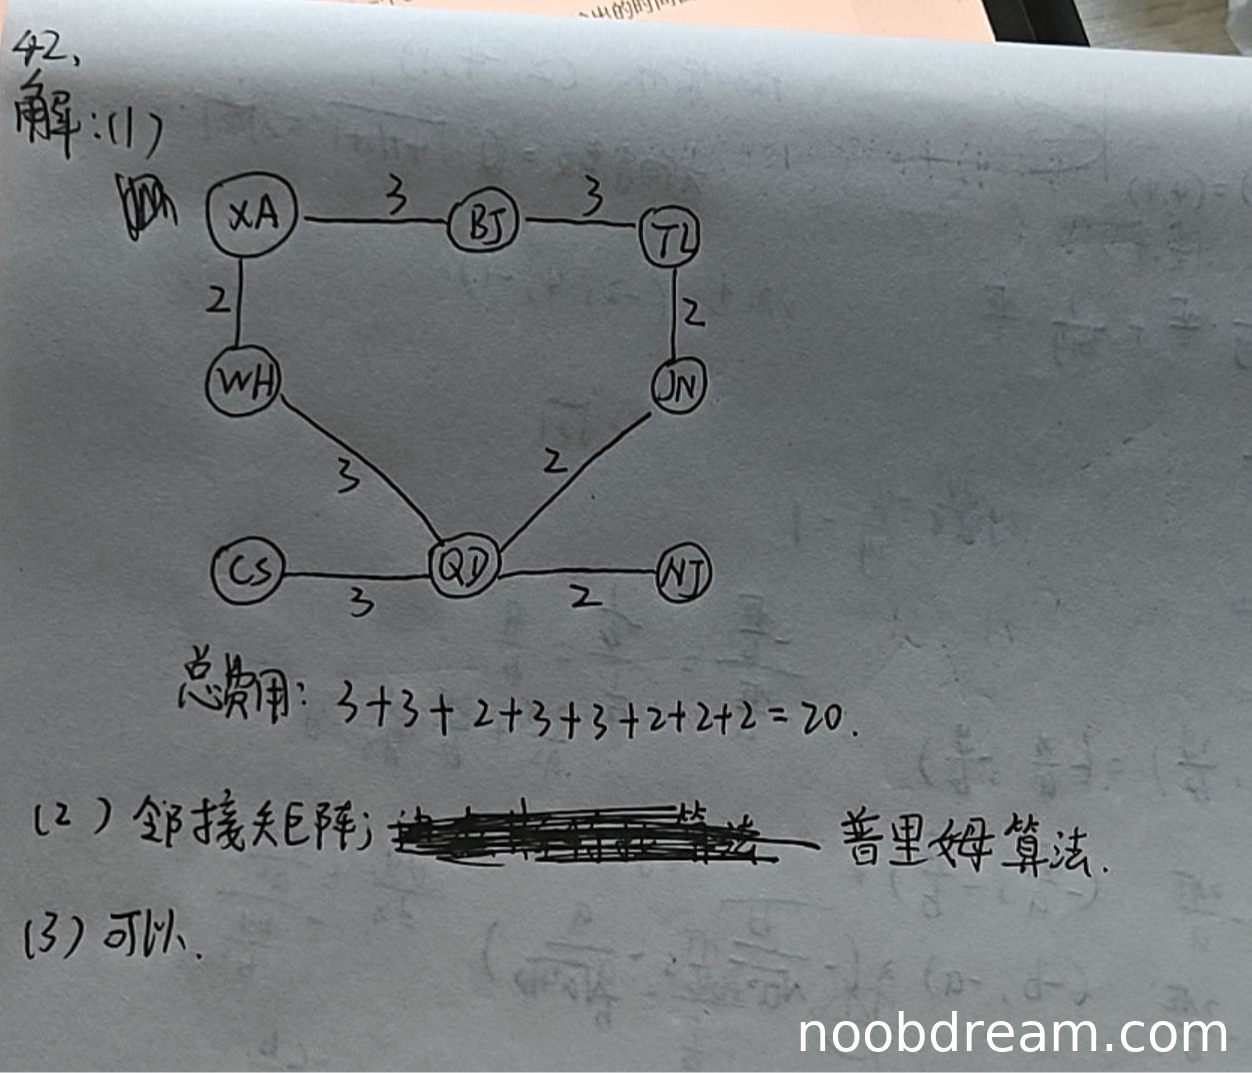 出的时间
42、
解:(1)
XA 3 BJ 3 TL
2 2
WH JN
3 2
CS 3 QD 2 NJ
总费用: 3+3+2+3+3+2+2+2=20.
(2) 邻接矩阵; 普里姆算法.
(3) 可以.
noobdream.com